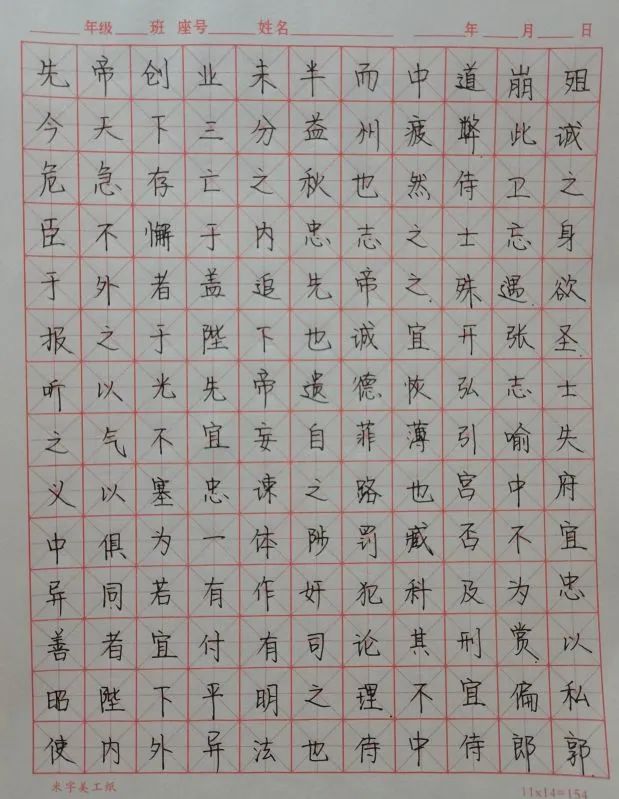 年级 班 座号 姓名 年 月 日
先帝创业未半而中道崩殂
今天下三分益州疲弊此诚
危急存亡之秋也然侍卫之
臣不懈于内忠志之士忘身
于外者盖追先帝之殊遇欲
报之于陛下也诚宜开张圣
听以光先帝遗德恢弘志士
之气不宜妄自菲薄引喻失
义以塞忠谏之路也宫中府
中俱为一体陟罚臧否不宜
异同若有作奸犯科及为忠
善者宜付有司论其刑赏以
昭陛下平明之理不宜偏私
使内外异法也侍中侍郎郭
米字美工纸 11x14=154